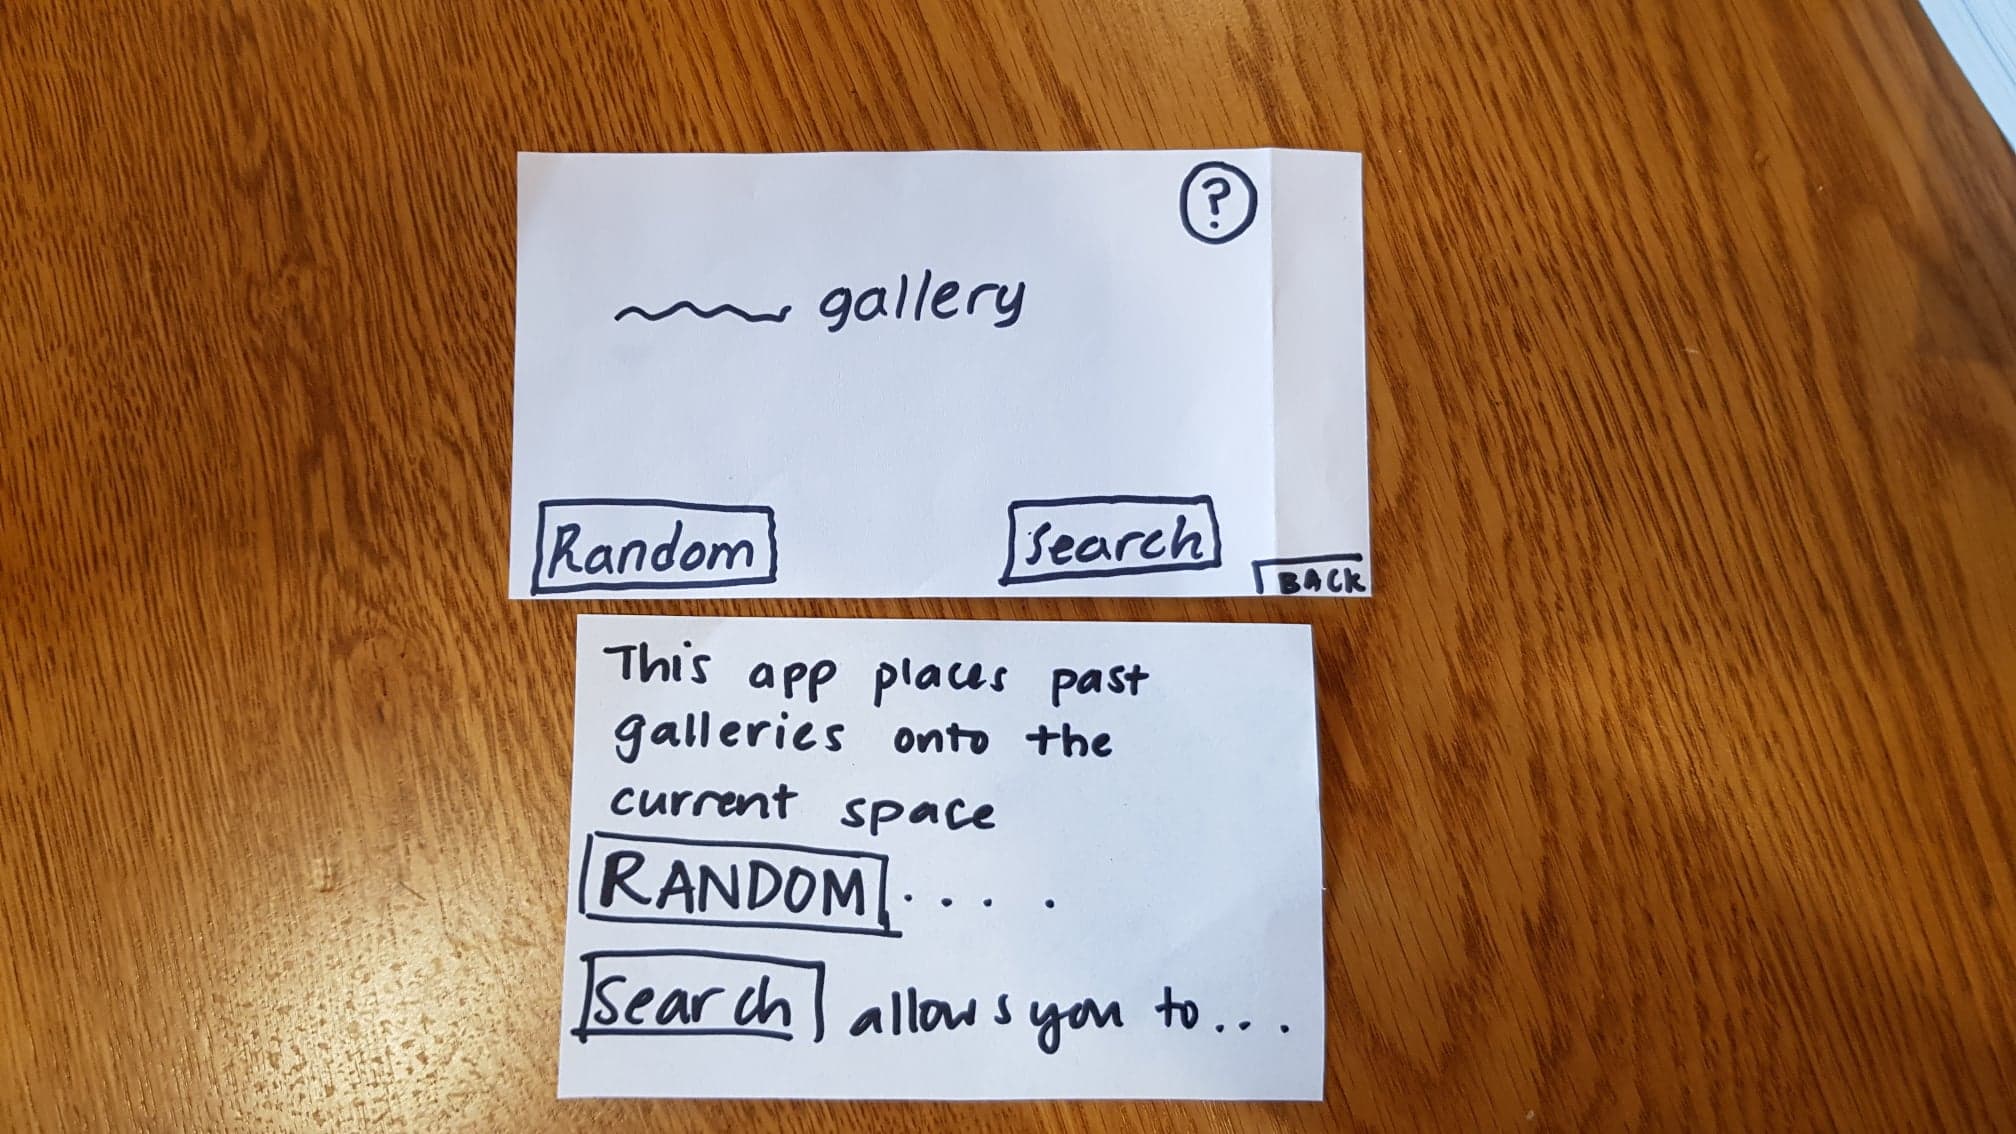 ?
gallery
Random
Search
BACK
This app places past
galleries onto the
current space
RANDOM....
Search allows you to...